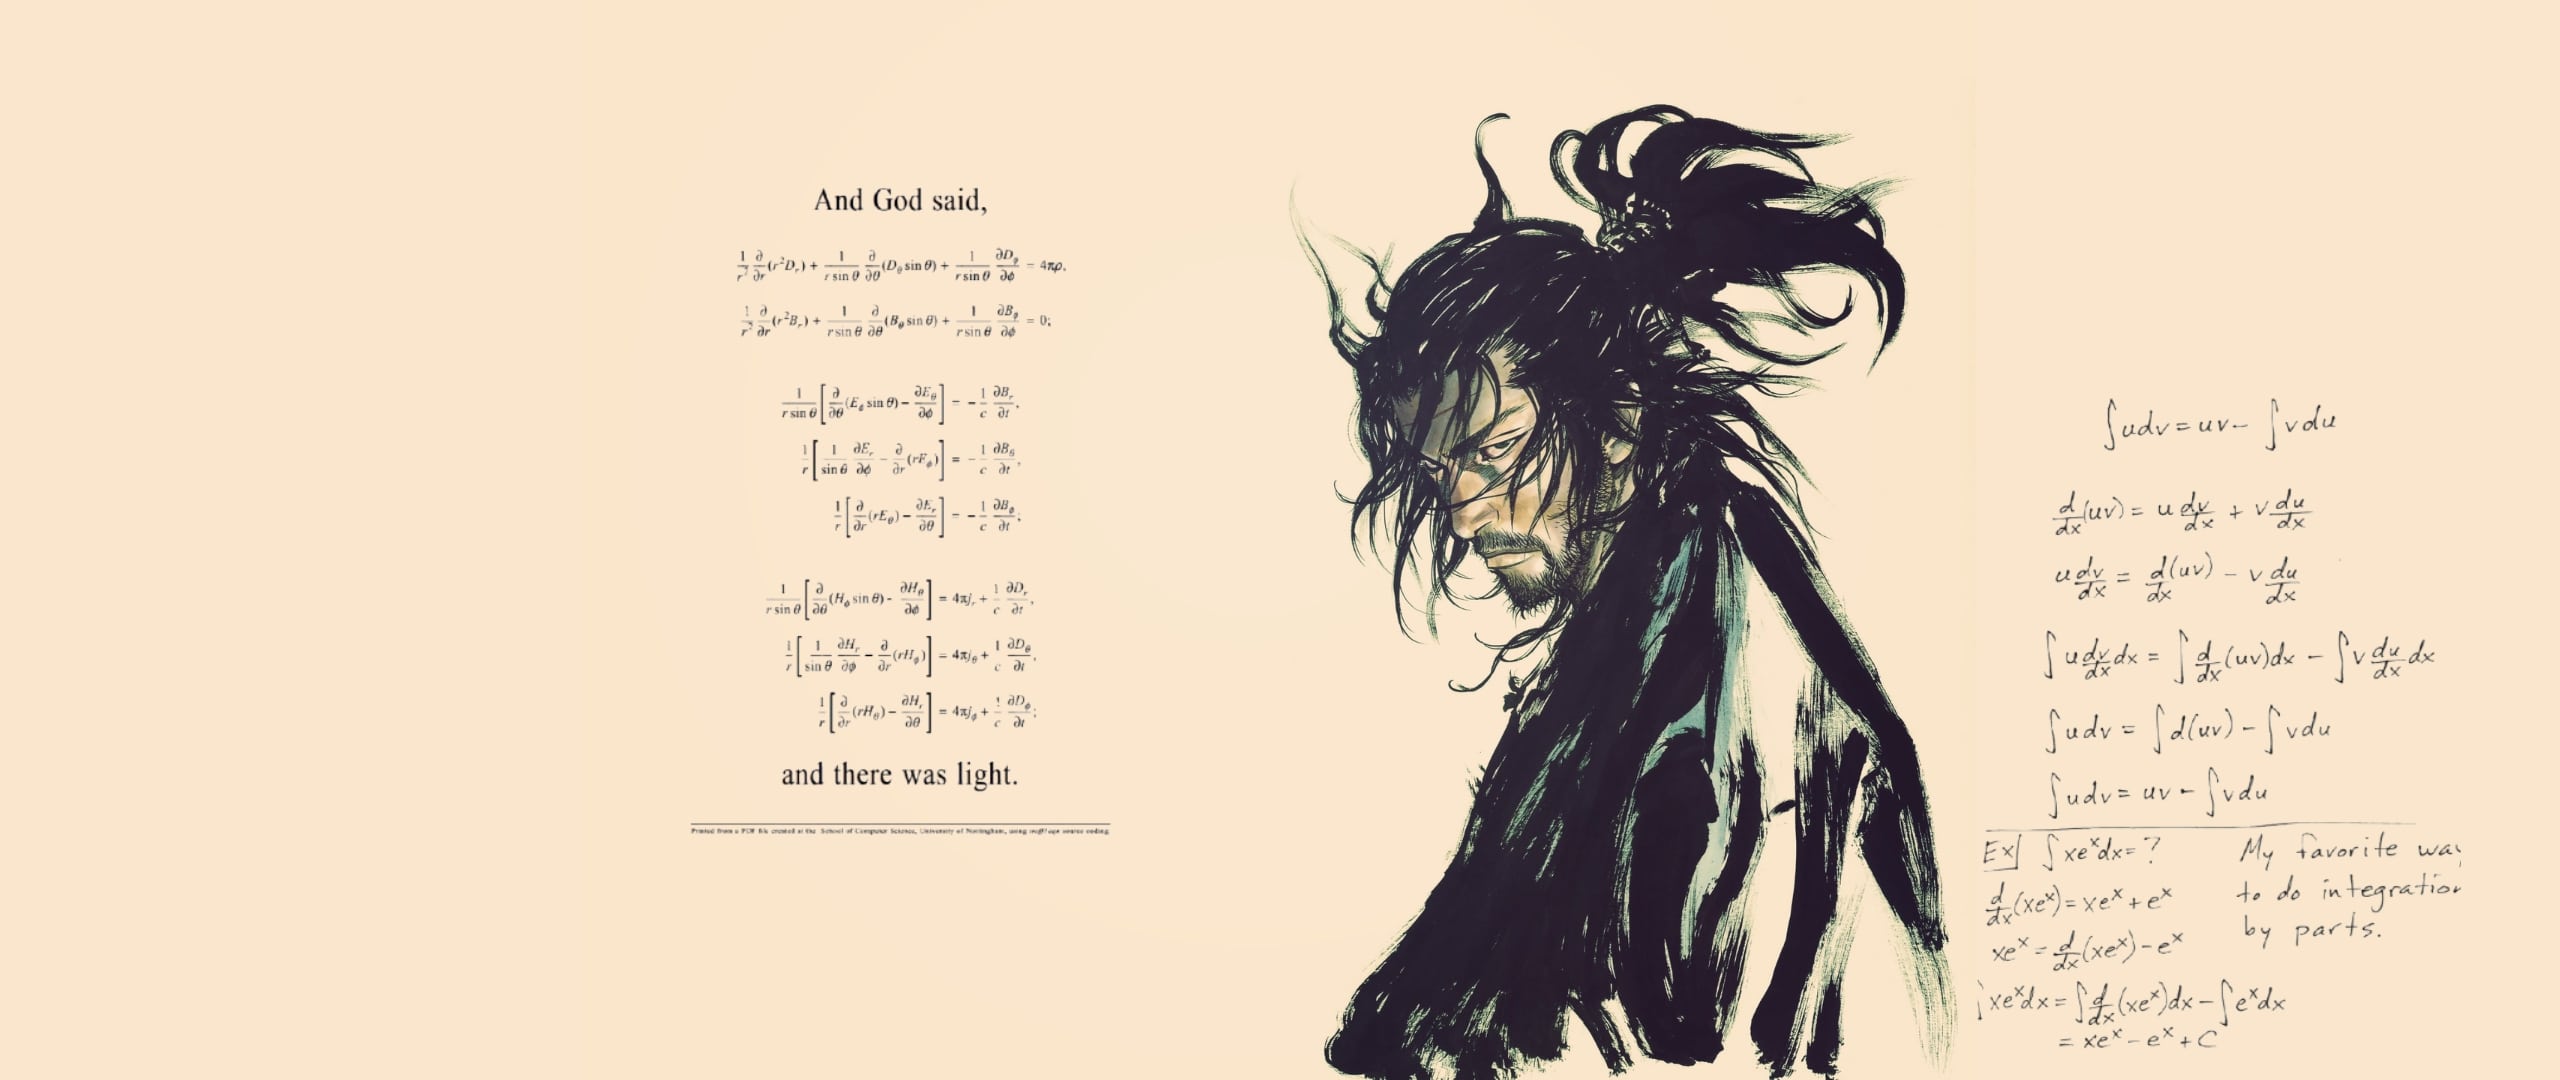 And God said,
1/r² ∂/∂r (r²D_r) + 1/(r sin θ) ∂/∂θ (D_θ sin θ) + 1/(r sin θ) ∂D_φ/∂φ = 4πρ,
1/r² ∂/∂r (r²B_r) + 1/(r sin θ) ∂/∂θ (B_θ sin θ) + 1/(r sin θ) ∂B_φ/∂φ = 0;
1/(r sin θ) [∂/∂θ (E_φ sin θ) − ∂E_θ/∂φ] = − 1/c ∂B_r/∂t,
1/r [1/sin θ ∂E_r/∂φ − ∂/∂r (rE_φ)] = − 1/c ∂B_θ/∂t,
1/r [∂/∂r (rE_θ) − ∂E_r/∂θ] = − 1/c ∂B_φ/∂t;
1/(r sin θ) [∂/∂θ (H_φ sin θ) − ∂H_θ/∂φ] = 4πj_r + 1/c ∂D_r/∂t,
1/r [1/sin θ ∂H_r/∂φ − ∂/∂r (rH_φ)] = 4πj_θ + 1/c ∂D_θ/∂t,
1/r [∂/∂r (rH_θ) − ∂H_r/∂θ] = 4πj_φ + 1/c ∂D_φ/∂t;
and there was light.
Printed from a PDF file created at the School of Computer Science, University of Nottingham, using source coding.
∫udv = uv − ∫vdu
d/dx (uv) = u dv/dx + v du/dx
u dv/dx = d/dx (uv) − v du/dx
∫u dv/dx dx = ∫ d/dx (uv)dx − ∫v du/dx dx
∫udv = ∫d(uv) − ∫vdu
∫udv = uv − ∫vdu
Ex] ∫xeˣdx = ?
d/dx (xeˣ) = xeˣ + eˣ
xeˣ = d/dx (xeˣ) − eˣ
∫xeˣdx = ∫ d/dx (xeˣ)dx − ∫eˣdx
= xeˣ − eˣ + C
My favorite way
to do integration
by parts.